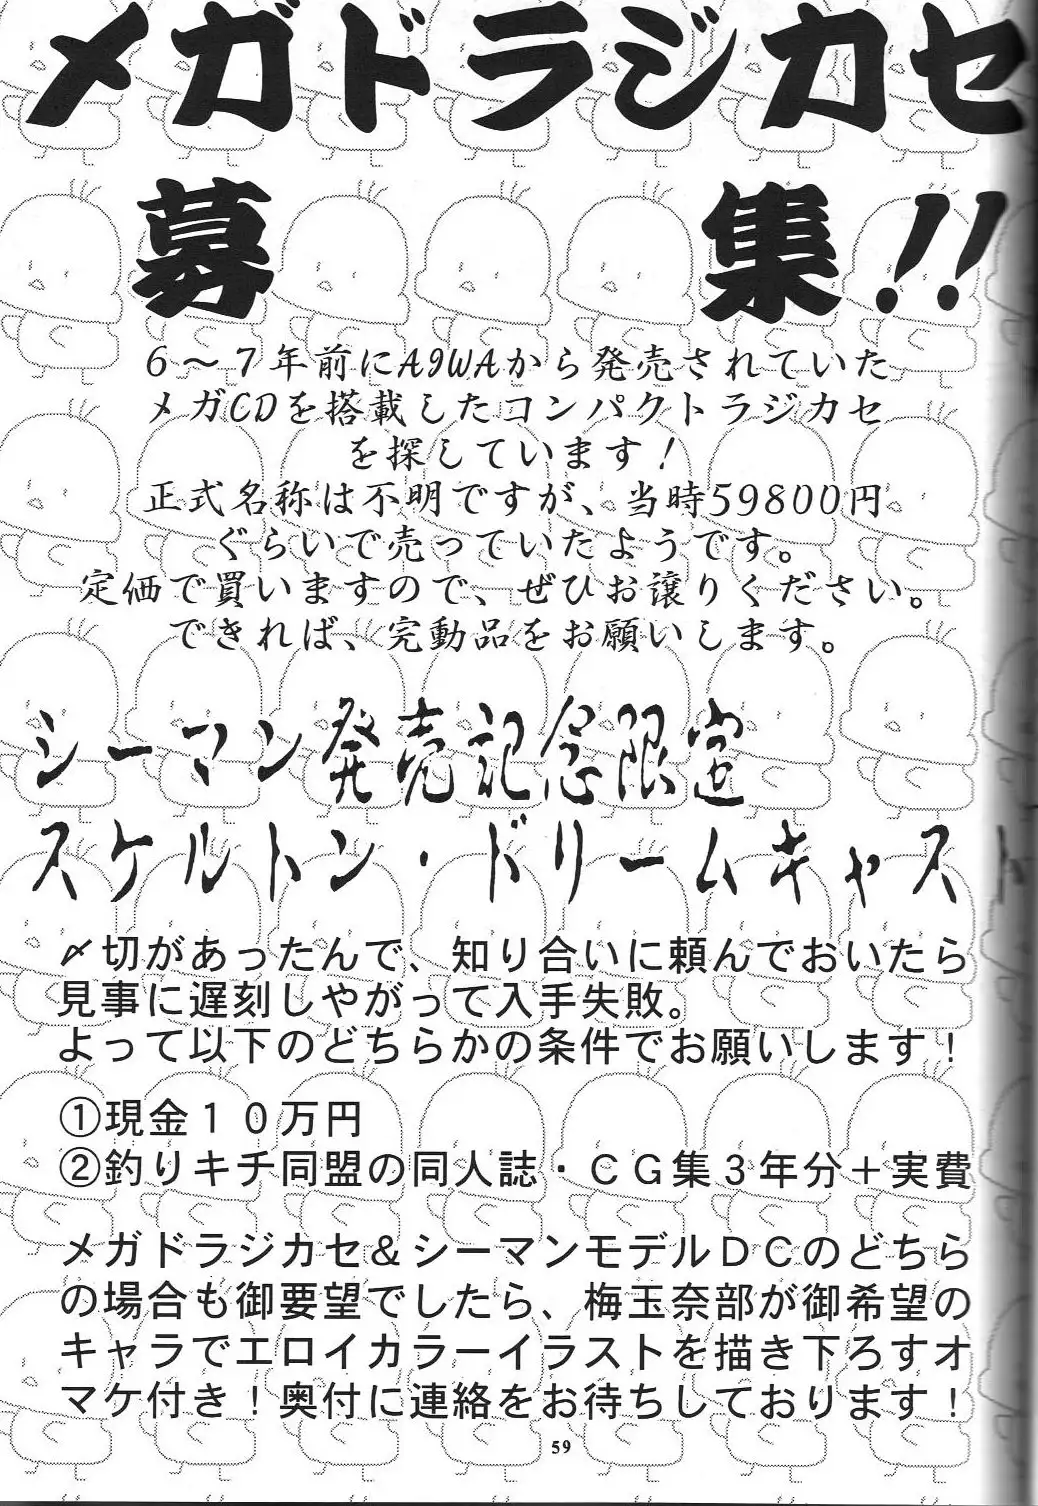 メガドラジカセ
募集!!
6～7年前にA9WAから発売されていた
メガCDを搭載したコンパクトラジカセ
を探しています!
正式名称は不明ですが、当時59800円
ぐらいで売っていたようです。
定価で買いますので、ぜひお譲りください。
できれば、完動品をお願いします。
シーマン発売記念限定
スケルトン・ドリームキャスト
〆切があったんで、知り合いに頼んでおいたら
見事に遅刻しやがって入手失敗。
よって以下のどちらかの条件でお願いします!
①現金１０万円
②釣りキチ同盟の同人誌・ＣＧ集３年分＋実費
メガドラジカセ＆シーマンモデルＤＣのどちら
の場合も御要望でしたら、梅玉奈部が御希望の
キャラでエロイカラーイラストを描き下ろすオ
マケ付き!奥付に連絡をお待ちしております!
59